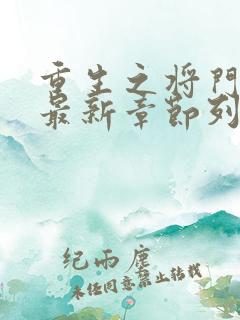 重生之将門
最新章節列
纪雨塵
未经同意禁止转载